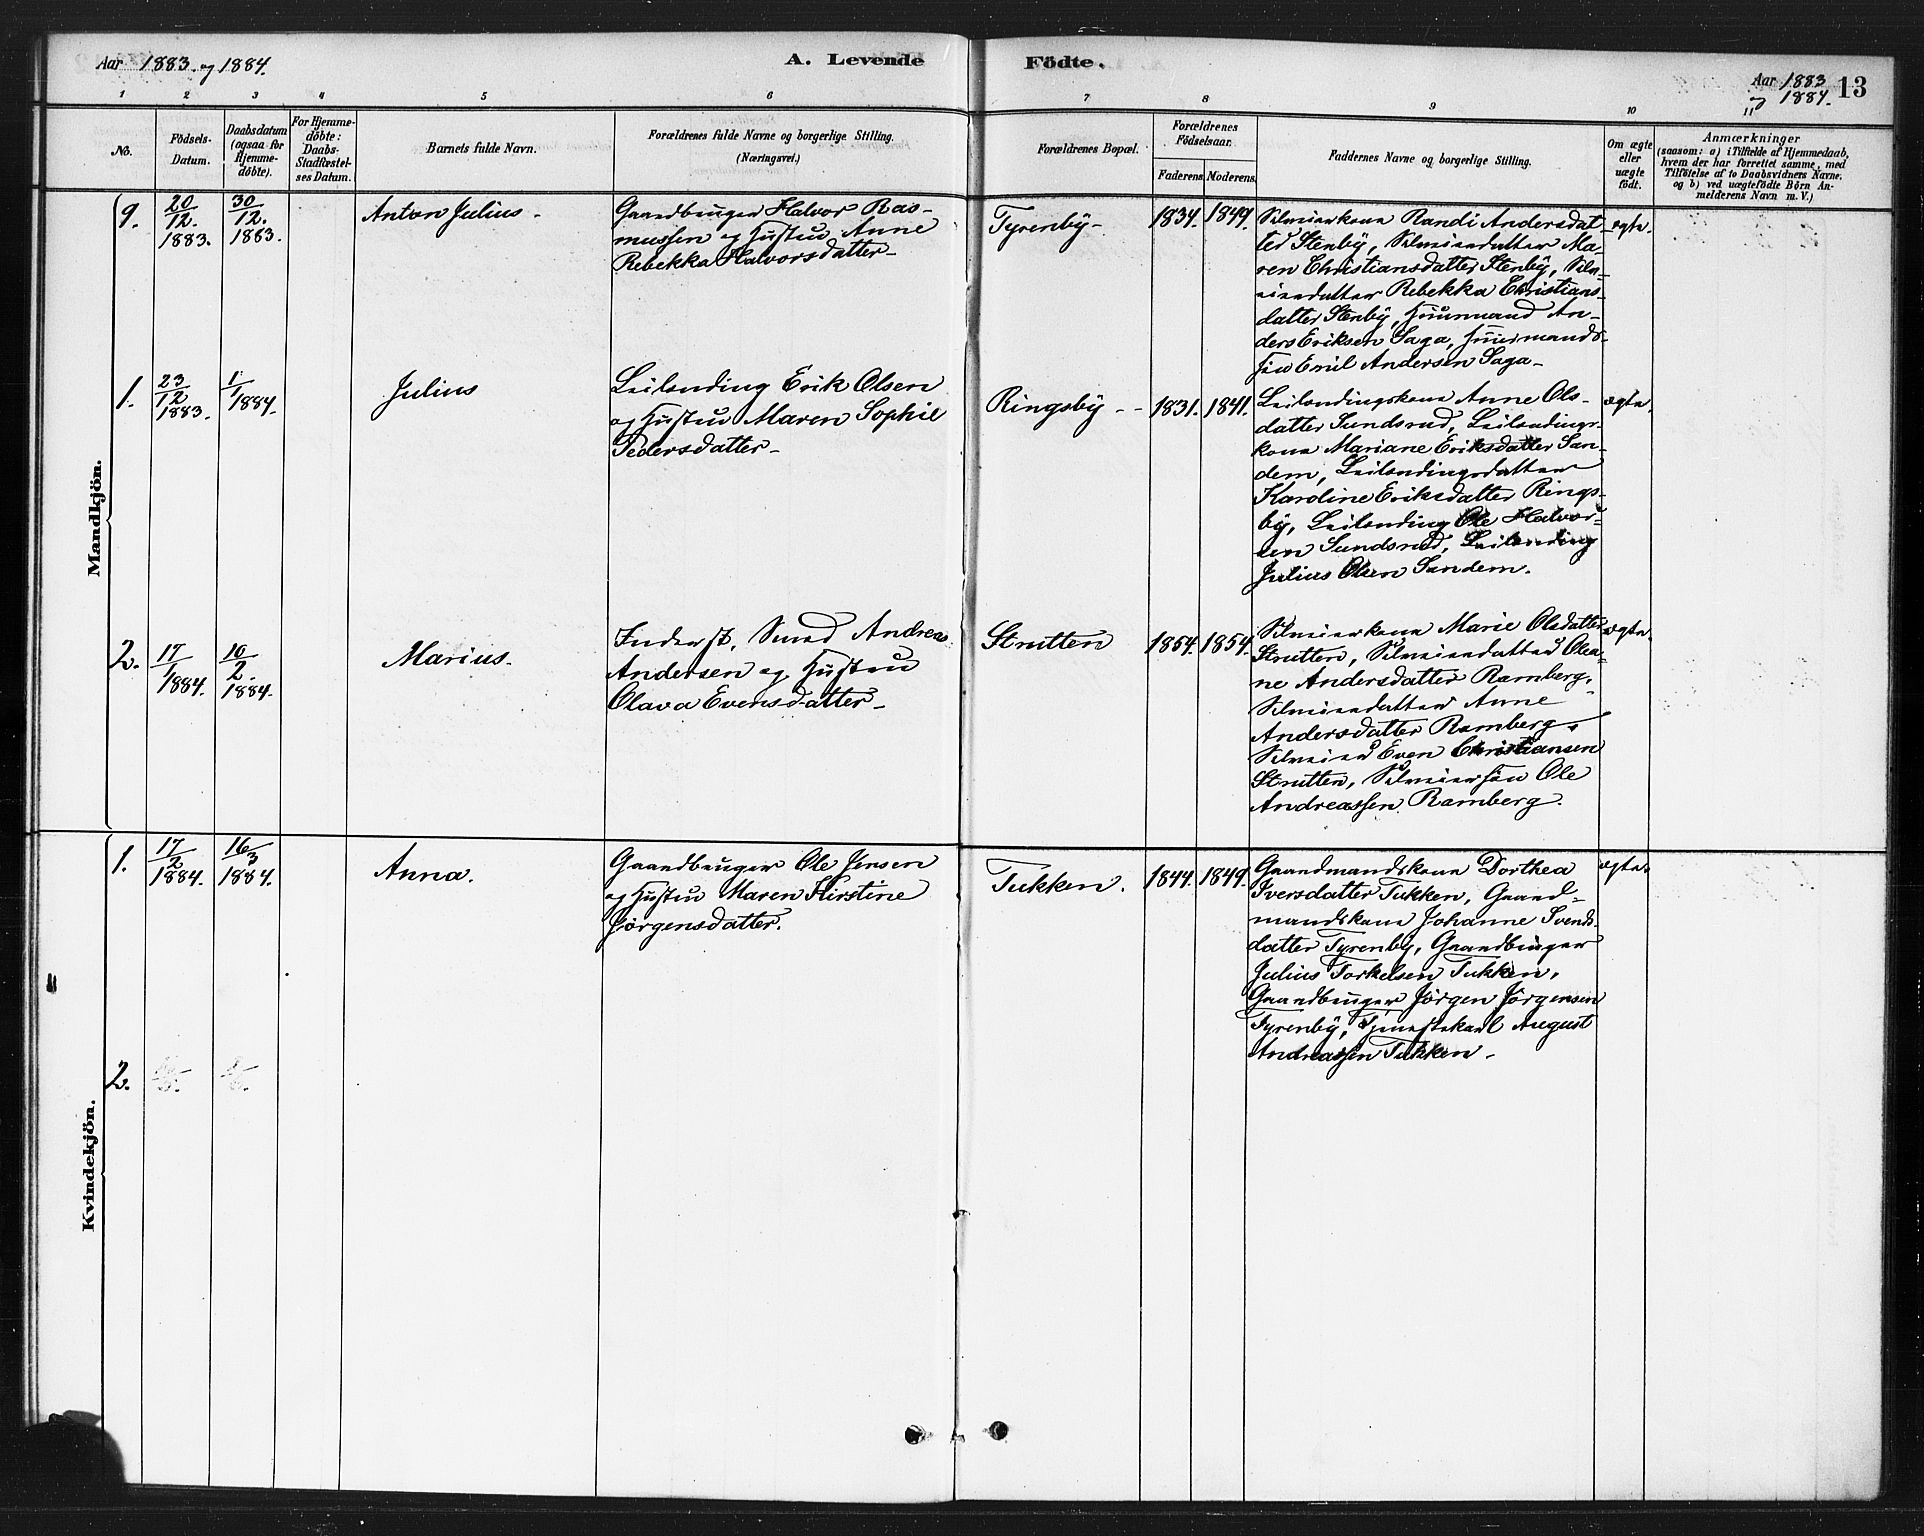 Aar 1883. og 1884.
A. Levende
Födte.
Aar 1883
og 1884.
13
1 2 3 4 5 6 7 8 9 10 11
No.
Födsels-
Datum.
Daabsdatum
(ogsaa for
Hjemme-
döbte).
For Hjemme-
döbte:
Daabs-
Stadfæstel-
ses Datum.
Barnets fulde Navn.
Forældrenes fulde Navne og borgerlige Stilling.
(Næringsvei.)
Forældrenes Bopæl.
Forældrenes
Födselsaar.
Faderens. Moderens.
Faddernes Navne og borgerlige Stilling.
Om ægte
eller
uægte
födt.
Anmærkninger
(saasom: a) i Tilfælde af Hjemmedaab,
hvem der har forrettet samme, med
Tilföielse af to Daabsvidners Navne;
og b) ved uægtefödte Börn An-
melderens Navn m. V.)
Mandkjön.
9.
20/12.
1883.
30/12.
1883.
Anton Julius
Gaardbruger Halvor Ras-
mussen og Hustru Anne
Rebekka Halvorsdatter
Tyrenby
1834. 1849.
Selveierkone Randi Andersdat-
ter Stenby, Selveierdatter Ma-
ren Christiansdatter Stenby, Selv-
eierdatter Rebekka Christians-
datter Stenby, Huusmand An-
ders Eriksen Saga, Huusmands-
søn Emil Andersen Saga
ægte.
1.
23/12
1883.
1/1
1884.
Julius
Leilending Erik Olsen
og Hustru Maren Sophie
Pedersdatter
Ringsby
1831. 1841.
Leilendingskone Anne Ols-
datter Sundsrud, Leilendings-
kone Mariane Eriksdatter San-
dem, Leilendingsdatter
Karoline Eriksdatter Rings-
by, Leilending Ole Halvor-
sen Sundsrud, Leilending
Julius Olsen Sandem.
ægte.
2.
17/1
1884.
10/2.
1884.
Marius.
Inderst, Smed Andreas
Andersen og Hustru
Olava Evensdatter
Strutten
1854. 1854.
Selveierkone Marie Olsdatter
Strutten, Selveierdatter Olea-
ne Andersdatter Ramberg,
Selveierdatter Anne
Andersdatter Ramberg,
Selveier Even Christiansen
Strutten, Selveiersøn Ole
Andreassen Ramberg.
ægte.
Kvindekjön.
1.
17/2
1884.
16/3
1884.
Anna.
Gaardbruger Ole Jensen
og Hustru Maren Kirstine
Jørgensdatter.
Tukken.
1844. 1849.
Gaardmandskone Dorthea
Iversdatter Tukken, Gaard-
mandskone Johanne Svends-
datter Tyrenby, Gaardbruger
Julius Torkelsen Tukken,
Gaardbruger Jørgen Jørgensen
Tyrenby, Tjenestekarl August
Andreassen Tukken
ægte.
2.